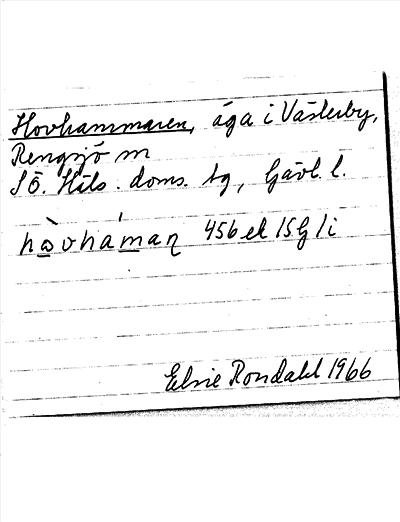 Hovhammaren, äga i Västerby,
Rengsjö sn
SÖ. Häls. doms. tg, Gävl. l.
hàvháman 456 ek 15G li
Elsie Rondahl 1966